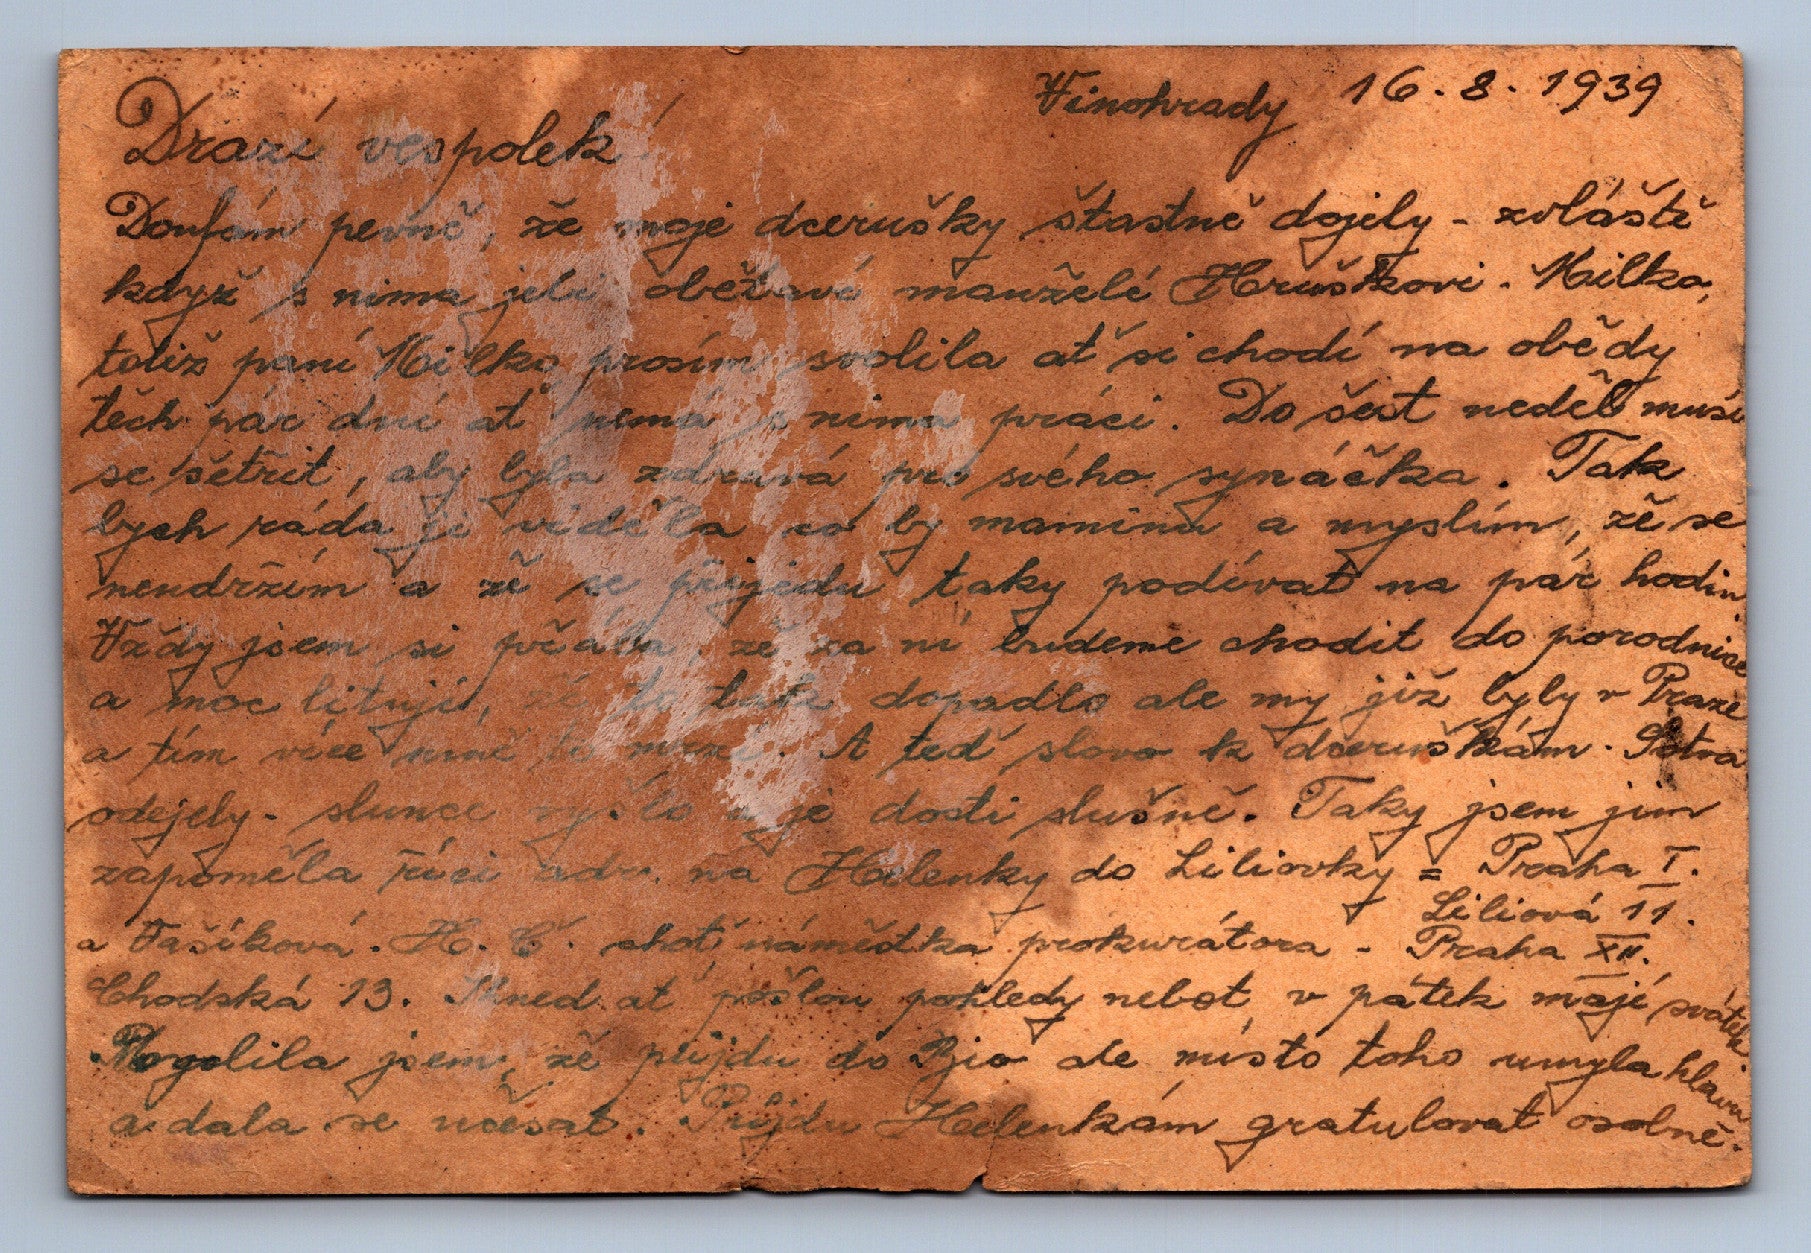 Vinohrady 16. 8. 1939
Drazí vespolek!
Doufám pevně, že moje dcerušky šťastně dojely - zvláště
když s nima jeli obětaví manželé Hruškovi. Milka,
totiž paní Milka prosím svolila ať si chodí na obědy
těch pár dní ať nemá s nima práci. Do šest neděl musí
se šetřit, aby byla zdravá pro svého synáčka. Tak
bych ráda ji viděla co by maminu a myslím, že se
neudržím a že se přijedu taky podívat na pár hodin
Vždy jsem si přála, že za ní budeme chodit do porodnice
a moc lituji, že to tak dopadlo ale my již byly v Praze
a tím více mně to mrzí. A teď slovo k dceruškám. Sotva
odejely - slunce vyšlo a je dosti slušně. Taky jsem jim
zapoměla říci adr. na Helenky do Liliovky = Praha I.
Liliová 11.
a Fašíková. H. Č. choť náměstka prokurátora - Praha XII.
Chodská 13. Ihned ať pošlou pohledy neboť v pátek mají svátek
Mogolila jsem, že půjdu do Bio ale místo toho umyla hlavu
a dala se učesat. Půjdu Helenkám gratulovat osobně.